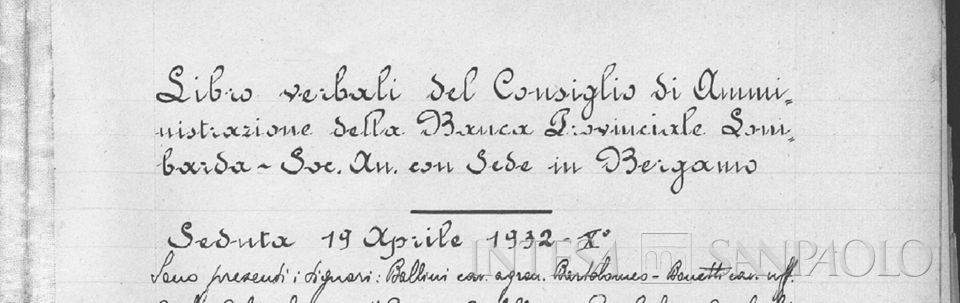 Libro verbali del Consiglio di Ammi-
nistrazione della Banca Provinciale Lom-
barda - Soc. An. con Sede in Bergamo
Seduta 19 Aprile 1932 - X°
INTESA SANPAOLO
Sono presenti i signori: Bellini cav. agron. Bartolomeo - Bonetti cav. uff.